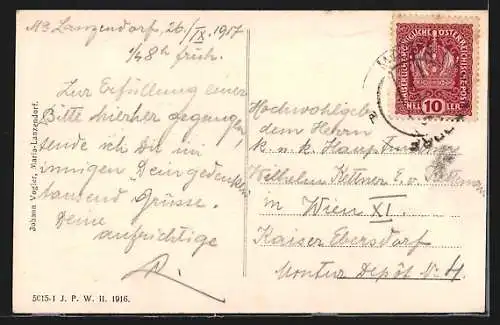 M3 Lanzendorf, 26/IX. 1917
1/2 8h früh.
Zur Erfüllung einer
Bitte hierher gegangen,
sende ich Dir in
innigen Deingedenken
tausend Grüsse.
Deine
aufrichtige
R.
Johann Vogler, Maria-Lanzendorf.
5015-1 J. P. W. II. 1916.
KAISERLICHE KÖNIGLICHE ÖSTERREICHISCHE POST
HELLER 10
Hochwohlgebo
dem Herrn
k. u. k. Haupt
Wilhelm Kettner E. v.
in Wien XI.
Kaiser Ebersdorf
Montur Depôt N. 4